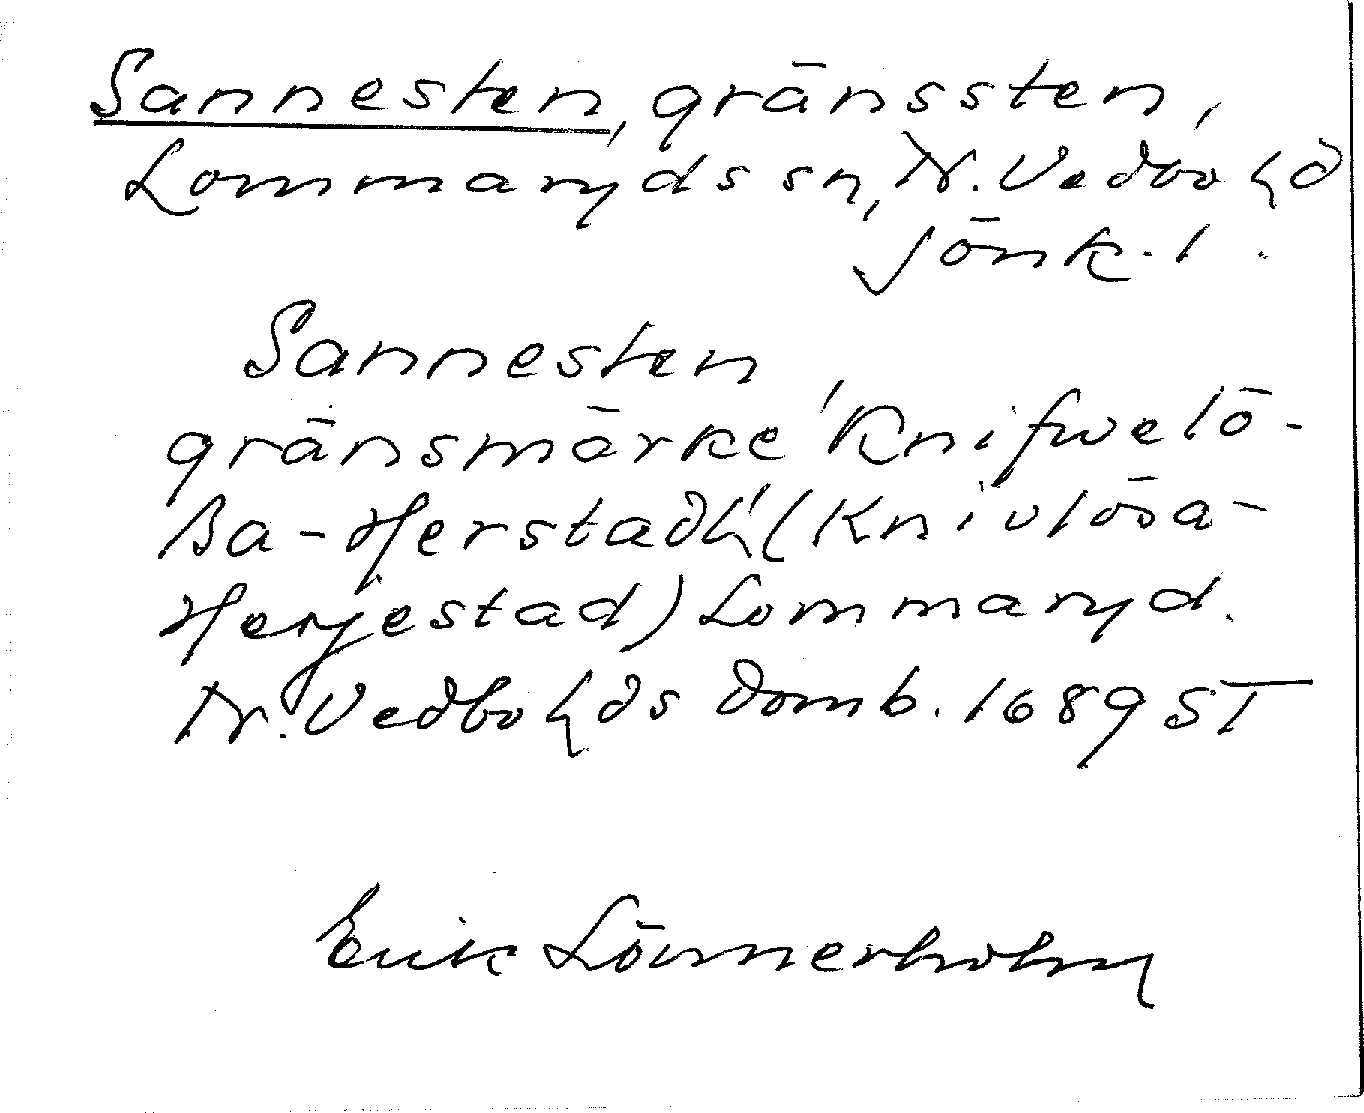 Sannesten, gränssten,
Lommaryds sn, N. Vedbo hd
Jönk. l.
Sannesten
gränsmärke 'Knifwelö-
sa-Herstadh' (Knivlösa-
Herjestad) Lommaryd.
N. Vedbo hds domb. 1689 ST
Erik Lönnerholm